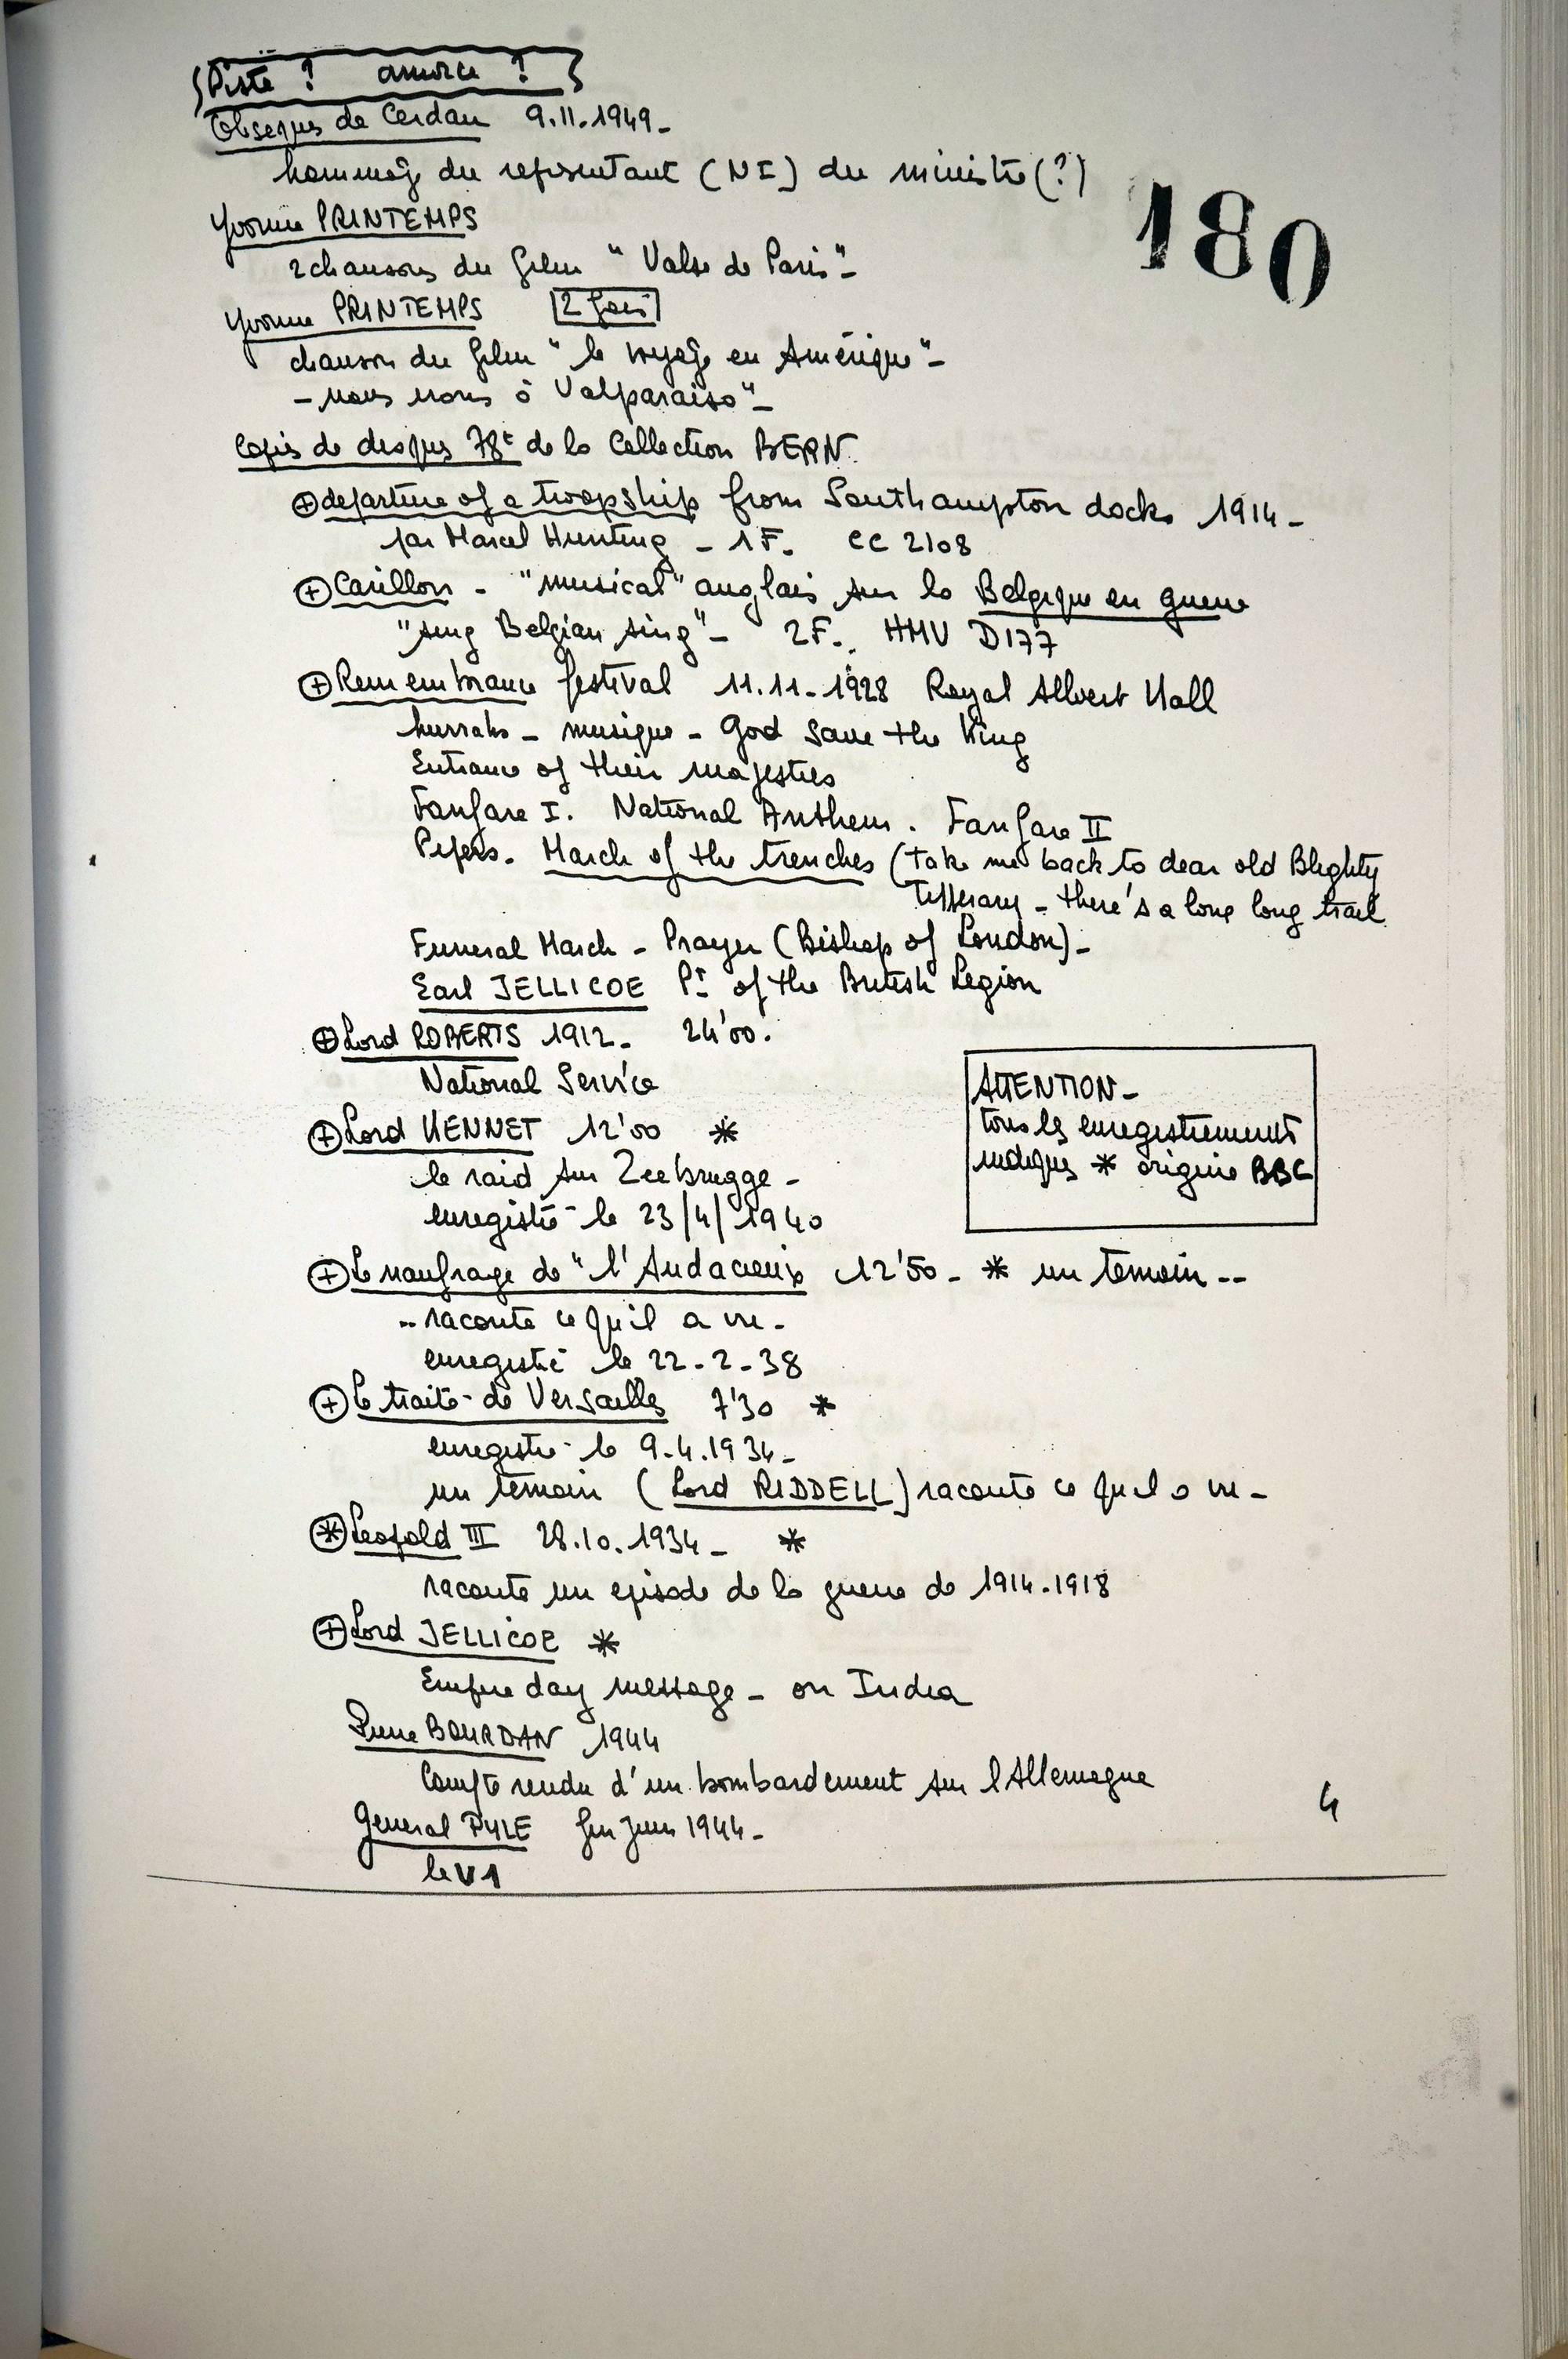 Piste ? amorce ?
Obseques de Cerdan 9.11.1949 -
hommage du representant (NI) du ministre (?)
180
Yvonne PRINTEMPS
2 chansons du film " Valse de Paris " -
Yvonne PRINTEMPS 2 fois
chanson du film " le voyage en Amérique " -
- nous irons à Valparaiso " -
Copies de disques 78t de la Collection BERN
⊕ departure of a troopship from Southampton docks 1914 -
par Marcel Hunting - 1 F. CC 2108
⊕ Carillon - "musical" anglais sur la Belgique en guerre
"sing Belgian sing" - 2F. HMV D177
⊕ Remembrance festival 11.11-1928 Royal Albert Hall
hurrahs - musique - God Save the King
Entrance of their majesties
Fanfare I. National Anthem. Fanfare II
Pipers. March of the trenches (take me back to dear old Blighty
Tipperary - there's a long long trail
Funeral March - Prayer (Bishop of London) -
Earl JELLICOE Pt of the British Legion
⊕ Lord ROBERTS 1912 - 24'00.
National Service
⊕ Lord KENNET 12'00 *
le raid sur Zeebrugge -
enregistré le 23/4/1940
ATTENTION -
tous les enregistrements
indiqués * origine BBC
⊕ le naufrage de "l'Audacieux 12'50 - * un temoin --
-- raconte ce qu'il a vu -
enregistré le 22-2-38
⊕ le traité de Versailles 7'30 *
enregistré le 9.4.1934 -
un temoin (Lord RIDDELL) raconte ce qu'il a vu -
⊛ Leopold III 28.10.1934 - *
raconte un episode de la guerre de 1914.1918
⊕ Lord JELLICOE *
Empire day message - on India
Pierre BOURDAN 1944
Compte rendu d'un bombardement sur l'Allemagne
General PYLE fin Juin 1944 -
le V1
4